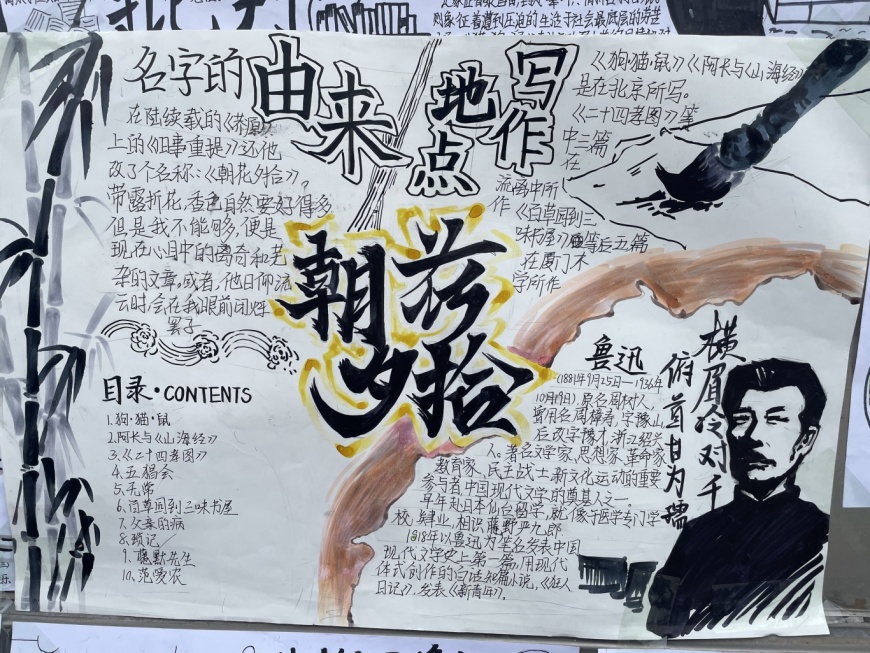 名字的由来
在陆续载的《莽原》
上的《旧事重提》还他
改了个名称:《朝花夕拾》,
带露折花,香色自然要好得多
但是我不能够,便是
现在心目中的离奇和芜
杂的文章。或者,他日仰流
云时,会在我眼前闪烁
罢了
写作地点
《狗·猫·鼠》《阿长与《山海经》
是在北京所写。
《二十四孝图》等
中三篇
在
流离中所
作《百草园到三
味书屋》等后五篇
在厦门大
学所作
朝花夕拾
目录·CONTENTS
1.狗·猫·鼠
2.阿长与《山海经》
3.《二十四孝图》
4.五猖会
5.无常
6.百草园到三味书屋
7.父亲的病
8.琐记
9.藤野先生
10.范爱农
鲁迅
(1881年9月25日—1936年
10月19日),原名周树人,
曾用名周樟寿,字豫山,
后改字豫才,浙江绍兴
人。著名文学家,思想家,革命家
教育家,民主战士,新文化运动的重要
参与者,中国现代文学的奠基人之一。
早年赴日本仙台留学,就像于医学专门学
校,肄业,相识藤野严九郎
1918年以鲁迅为笔名发表中国
现代文学史上第一篇用现代
体式创作的白话短篇小说,《狂人
日记》,发表《新青年》。
横眉冷对千
俯首甘为孺